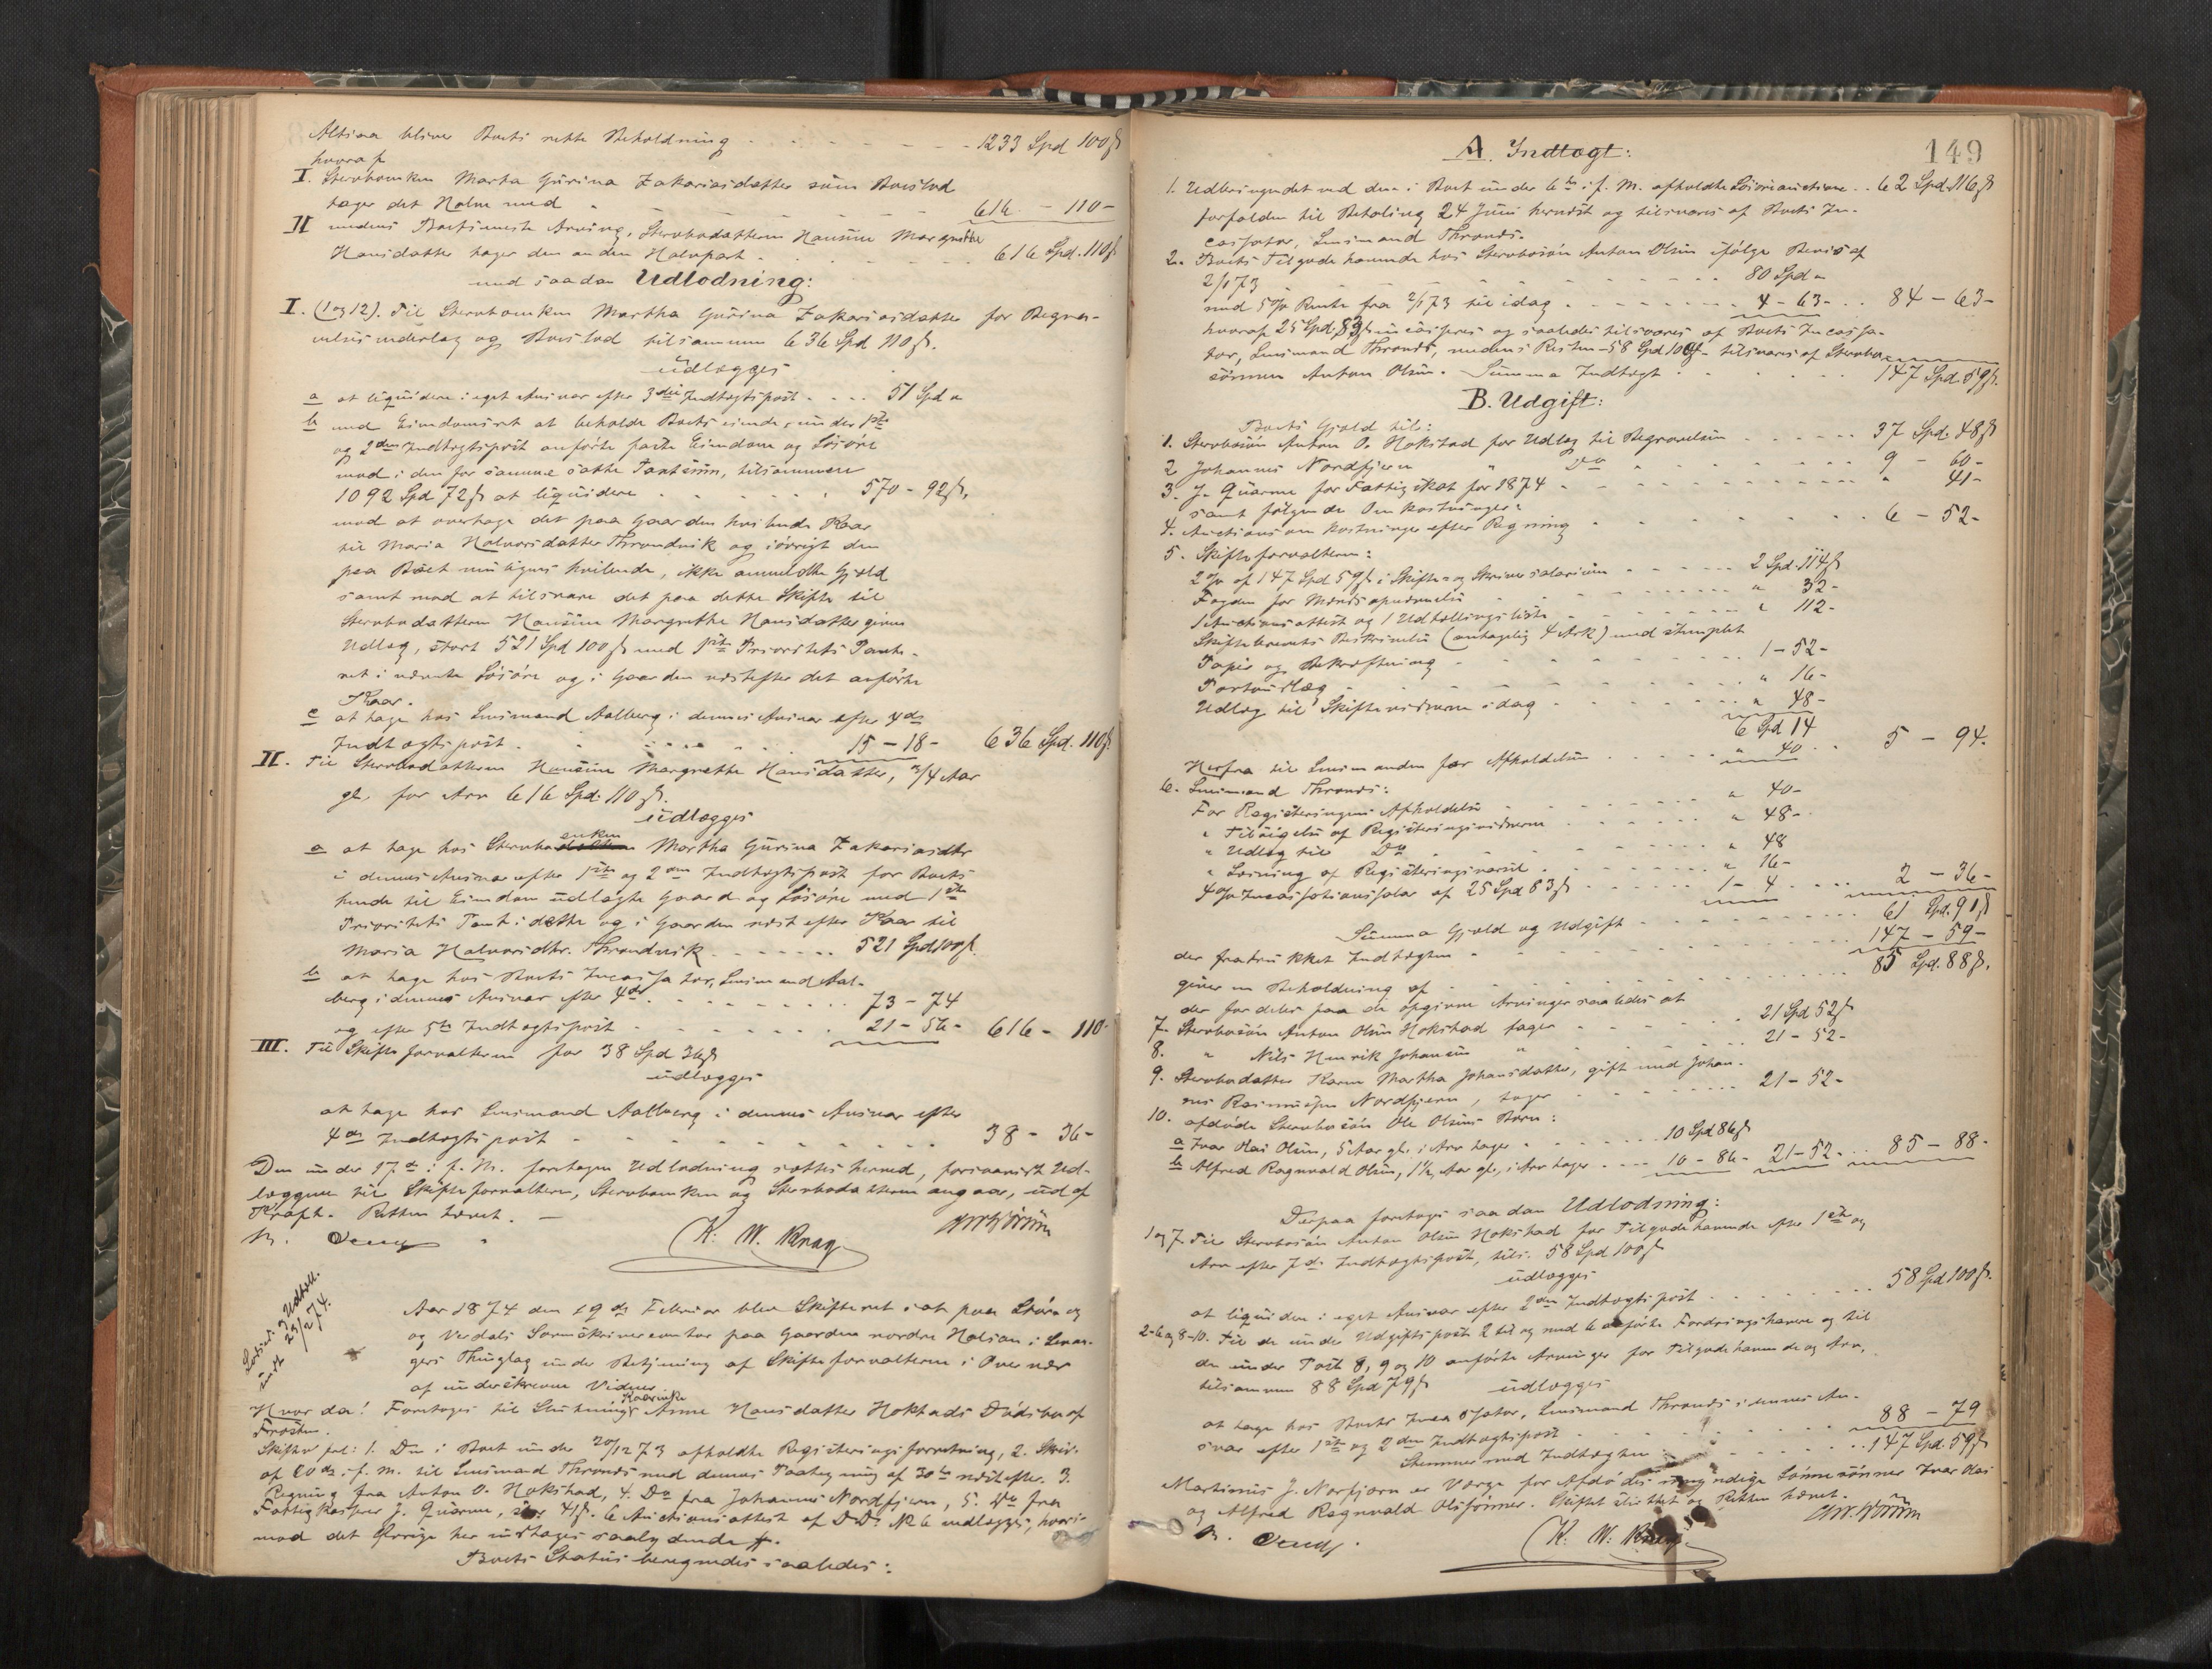 Altsaa bliver Boets rette Beholdning - - - 1233 Spd 100 ß
hvoraf
I. Stervboenken Marta Gurina Zakariasdatter som Boeslod
tager det Halve med - - - 616 - 110 -
II medens Boets eneste Arving, Stervbodatteren Hansine Margrethe
Hansdatter tager den anden Halvpart - - - 616 Spd. 110 ß
med saadan Udlodning:
I. (1 og 12). Til Stervboenken Martha Gurina Zakariasdatter for Begra-
velsesudlæg og Boeslod tilsammen 636 Spd 110 ß.
udlægges
a at liquidere i eget Ansvar efter 3die Indtægtspost - - - 51 Spd "
b med Eiendomsret at beholde Boets eiende, under 1ste
og 2den Indtægtspost anførte faste Eiendom og Løsøre
mod i den for samme satte Taxtsum, tilsammen
1092 Spd 72 ß at liquidere - - - 570 - 92 ß.
mod at overtage det paa Gaarden hvilende Kaar
til Maria Halvorsdatter Throndvik og iøvrigt den
paa Boet muligens hvilende, ikke anmeldte Gjæld
samt mod at tilsvare det paa dette Skifte til
Stervbodatteren Hansine Margrethe Hansdatter givne
Udlæg, stort 521 Spd 100 ß med 1ste Prioritets Pante-
ret i nævnte Løsøre og i Gaarden næstefter det anførte
Kaar.
c at tage hos Lensmand Aalberg i dennes Ansvar efter 4de
Indtægtspost - - - 15 - 18 - 636 Spd. 110 ß.
II. Til Stervbodatteren Hansine Margrethe Hansdatter, 3/4 Aar
gl., for Arv 616 Spd. 110 ß.
udlægges
a at tage hos Stervboenken Martha Gurina Zakariasdtr
i dennes Ansvar efter 1ste og 2den Indtægtspost for Boets
hende til Eiendom udlagte Gaard og Løsøre med 1ste
Prioritets Pant i dette og i Gaarden næst efter Kaar til
Maria Halvorsdtr. Throndvik - - - 521 Spd 100 ß.
b at tage hos Boets Incassator, Lensmand Aal-
berg i dennes Ansvar efter 4de - - - 73 - 74
og efter 5te Indtægtspost - - - 21 - 56 - 616 - 110 -
III. Til Skifteforvalteren for 38 Spd 36 ß
udlægges
at tage hos Lensmand Aalberg i dennes Ansvar efter
4de Indtægtspost - - - 38 - 36 -
Den under 17de i f. M. foretagne Udlodning sættes herved, forsaavidt Ud-
læggene til Skifteforvalteren, Stervboenken og Stervbodatteren angaar, ud af
Kraft. Retten hævet. —
K. W. Krag
Aar 1874 den 19de Februar blev Skifteret sat paa Stør- og
og Verdals Sorenskrivercontor paa Gaarden nordre Halsan i Levan-
gers Thinglag under Betjening af Skifteforvalteren i Overvær
af underskrevne Vidner
Hvorda! Foretoges til Slutning Anne Hansdatter Hokstads Dødsbo af
Frosten.
Skifterf. frl: 1. Den i Boet under 20/12 73 afholdte Registeringsforretning, 2. Skriv.
af 20de i f. M. til Lensmand Thronæs med dennes Paategning af 30te næstefter. 3.
Regning fra Anton O. Hokstad, 4. Do fra Johannes Nordfjern, 5. Do fra
Fattigkasser J. Qvarme, 41 ß. 6 Auctionsattest af D.D. No 6 vedlægges, hvori-
mod det Øvrige her indtages saalydende #.
Boets Status beregnedes saaledes:
149
A. Indtægt:
1. Udbringendet ved den i Boet under 6te i f. M. afholdte Løsøreauction - - 62 Spd. 116 ß
forfalden til Betaling 24 Juni herefter og tilsvares af Boets In-
cassator, Lensmand Thronæs.
2. Boets Tilgodehavende hos Stervbosøn Anton Olsen ifølge Bevis af
2/1 73 - - - 80 Spd "
med 5 % Rente fra 2/1 73 til idag - - - 4 - 63 - - 84 - 63 -
hvoraf 25 Spd. 83 ß incasseres og saaledes tilsvares af Boets Incassa-
tor, Lensmand Thronæs, medens Resten - 58 Spd 100 ß - tilsvares af Stervbo-
sønnen Anton Olsen. Summa Indtægt - - - 147 Spd. 59 ß.
B. Udgift:
Boets Gjæld til:
1. Stervbosøn Anton O. Hokstad for Udlæg til Begravelsen - - - 37 Spd. 48 ß
2 Johannes Nordfjern " Do - - - 9 - 60 -
3. J. Qvarme for Fattigskat for 1874 - - - " 41 -
samt følgende Omkostninger:
4. Auctionsomkostninger efter Regning - - - 6 - 52 -
5. Skifteforvalteren:
2 % af 147 Spd 59 ß i Skifte- og Skriversalarium - - - 2 Spd. 114 ß
Fogden for Mændsopnævnelse - - - " 32 -
1 Auctionsattest og 1 Udtællingsliste - - - " 112 -
Skiftebrevets Beskrivelse (antagelig 4 Ark) med stemplet
Papir og Bekræftning - - - 1 - 52 -
Portoudlæg - - - " 16 -
Udlæg til Skiftevidnerne idag - - - " 48 -
6 Spd 14
Herfra til Lensmanden for Afholdelsen - - - " 40 - - 5 - 94.
6. Lensmand Thronæs:
For Registeringens Afholdelse - - - " 40 -
" Tilsigelse af Registeringsvidnerne - - - " 48 -
" Udlæg til Do - - - " 48
" Løsning af Registeringsvarsel - - - " 16 -
4 % Incassationssalar af 25 Spd 83 ß - - - 1 - 4 - - - 2 - 36 -
Summa Gjæld og Udgift - - - 61 Spd. 91 ß
der fradrukket Indtægten - - - 147 - 59 -
giver en Beholdning af - - - 85 Spd. 88 ß.
der fordeles paa de opgivne Arvinger saaledes at
7. Stervbosøn Anton Olsen Hokstad tager - - - 21 Spd 52 ß
8. " Nils Henrik Johansen " - - - 21 - 52 -
9. Stervbodatter Karen Martha Johansdatter, gift med Johan-
nes Rasmussen Nordfjern, tager - - - 21 - 52 -
10. afdøde Stervbosøn Ole Olsens Børn:
a Ivar Olai Olsen, 5 Aar gl. i Arv tager - - - 10 Spd 86 ß
b Alfred Ragnvald Olsen, 1½ Aar gl., i Arv tager - - - 10 - 86 - 21 - 52 - - 85 - 88 -
Derpaa foretoges saadan Udlodning:
1 og 7. Til Stervbosøn Anton Olsen Hokstad for Tilgodehavende efter 1ste og
Arv efter 7de Indtægtspost, tils. 58 Spd 100 ß
udlægges
at liquidere i eget Ansvar efter 2den Indtægtspost - - - 58 Spd 100 ß.
2-6 og 8-10. Til de under Udgiftspost 2 til og med 6 anførte Fordringshavere og til
de under Post 8, 9 og 10 anførte Arvinger for Tilgodehavende og Arv,
tilsammen 88 Spd 79 ß udlægges
at tage hos Boets Incassator, Lensmand Thronæs i dennes An-
svar efter 1ste og 2den Indtægtspost - - - 88 - 79
Stemmer med Indtægten - - - 147 Spd. 59 ß
Martinus J. Norfjern er Værge for Afdødes umyndige Sønnesønner Ivar Olai
og Alfred Ragnvald Olssønner. Skiftet sluttet og Retten hævet.
K. W. Krag